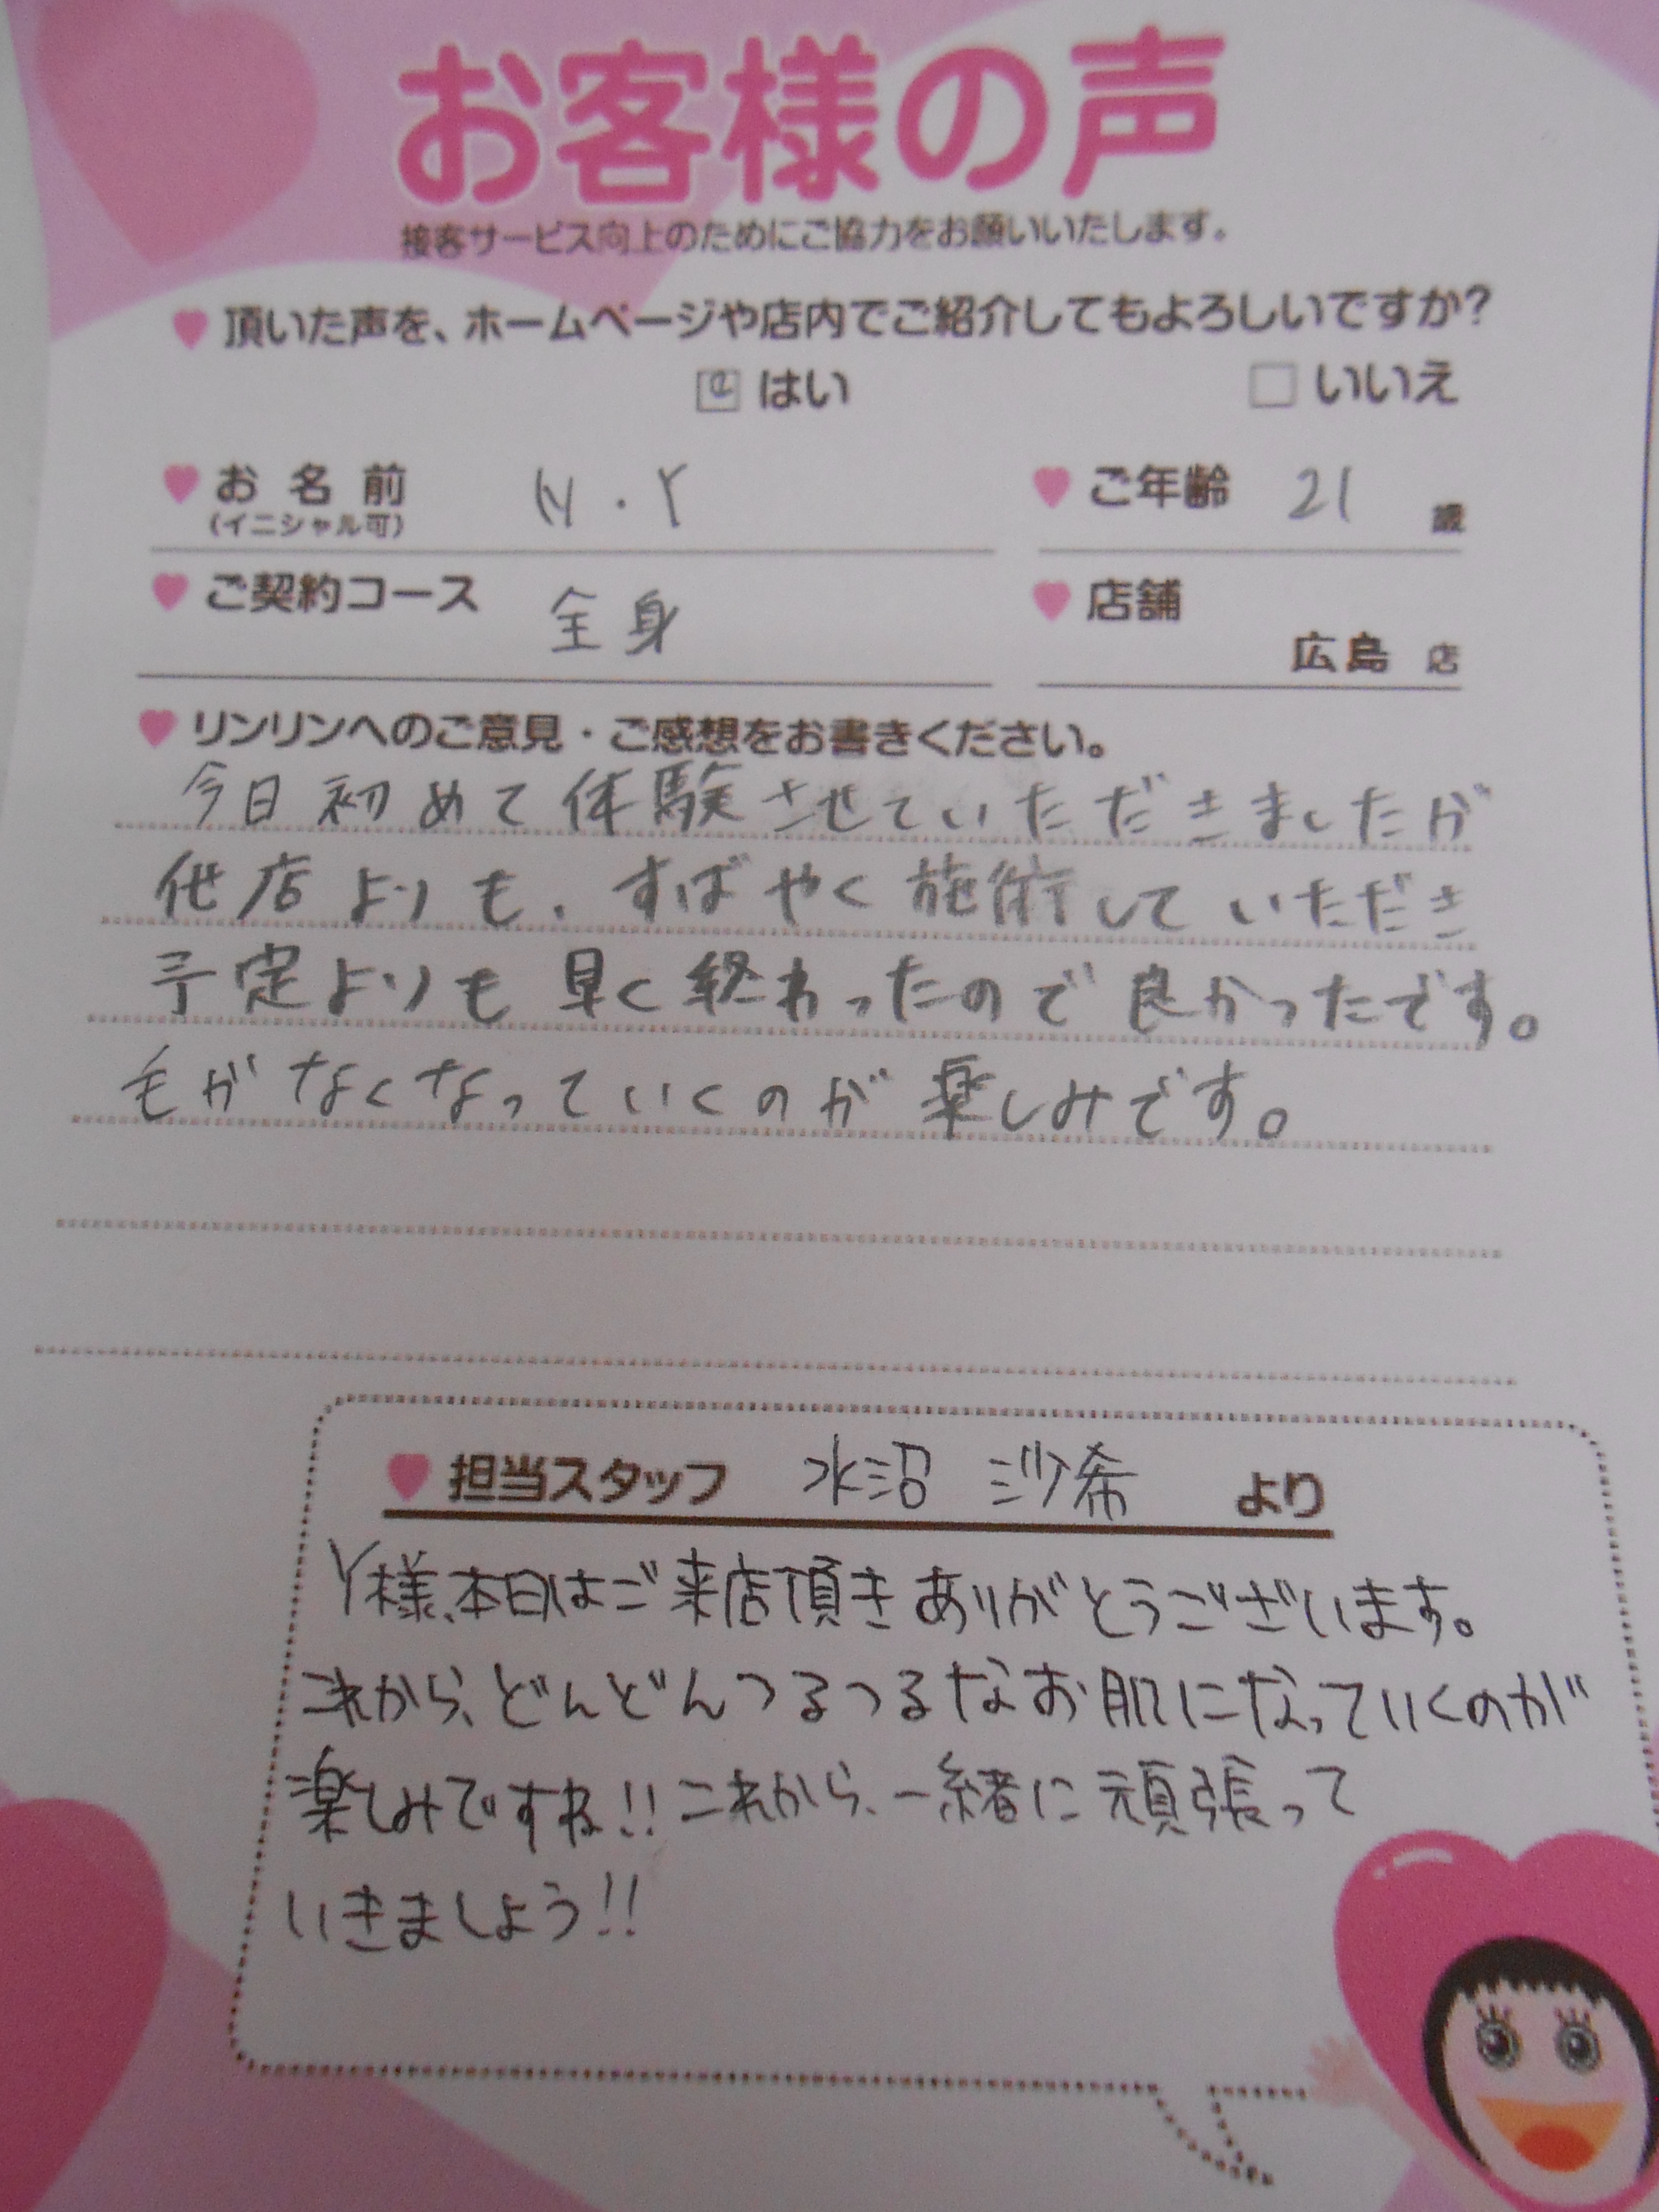 お客様の声
接客サービス向上のためにご協力をお願いいたします。
頂いた声を、ホームページや店内でご紹介してもよろしいですか？
はい いいえ
お名前 N.Y ご年齢 21 歳
(イニシャル可)
ご契約コース 全身 店舗
広島 店
リンリンへのご意見・ご感想をお書きください。
今日初めて体験させていただきましたが
他店よりも、すばやく施術していただき
予定よりも早く終わったので良かったです。
毛がなくなっていくのが楽しみです。
担当スタッフ 水沼 沙希 より
Y様、本日はご来店頂きありがとうございます。
これから、どんどんつるつるなお肌になっていくのが
楽しみですね!! これから、一緒に頑張って
いきましょう!!